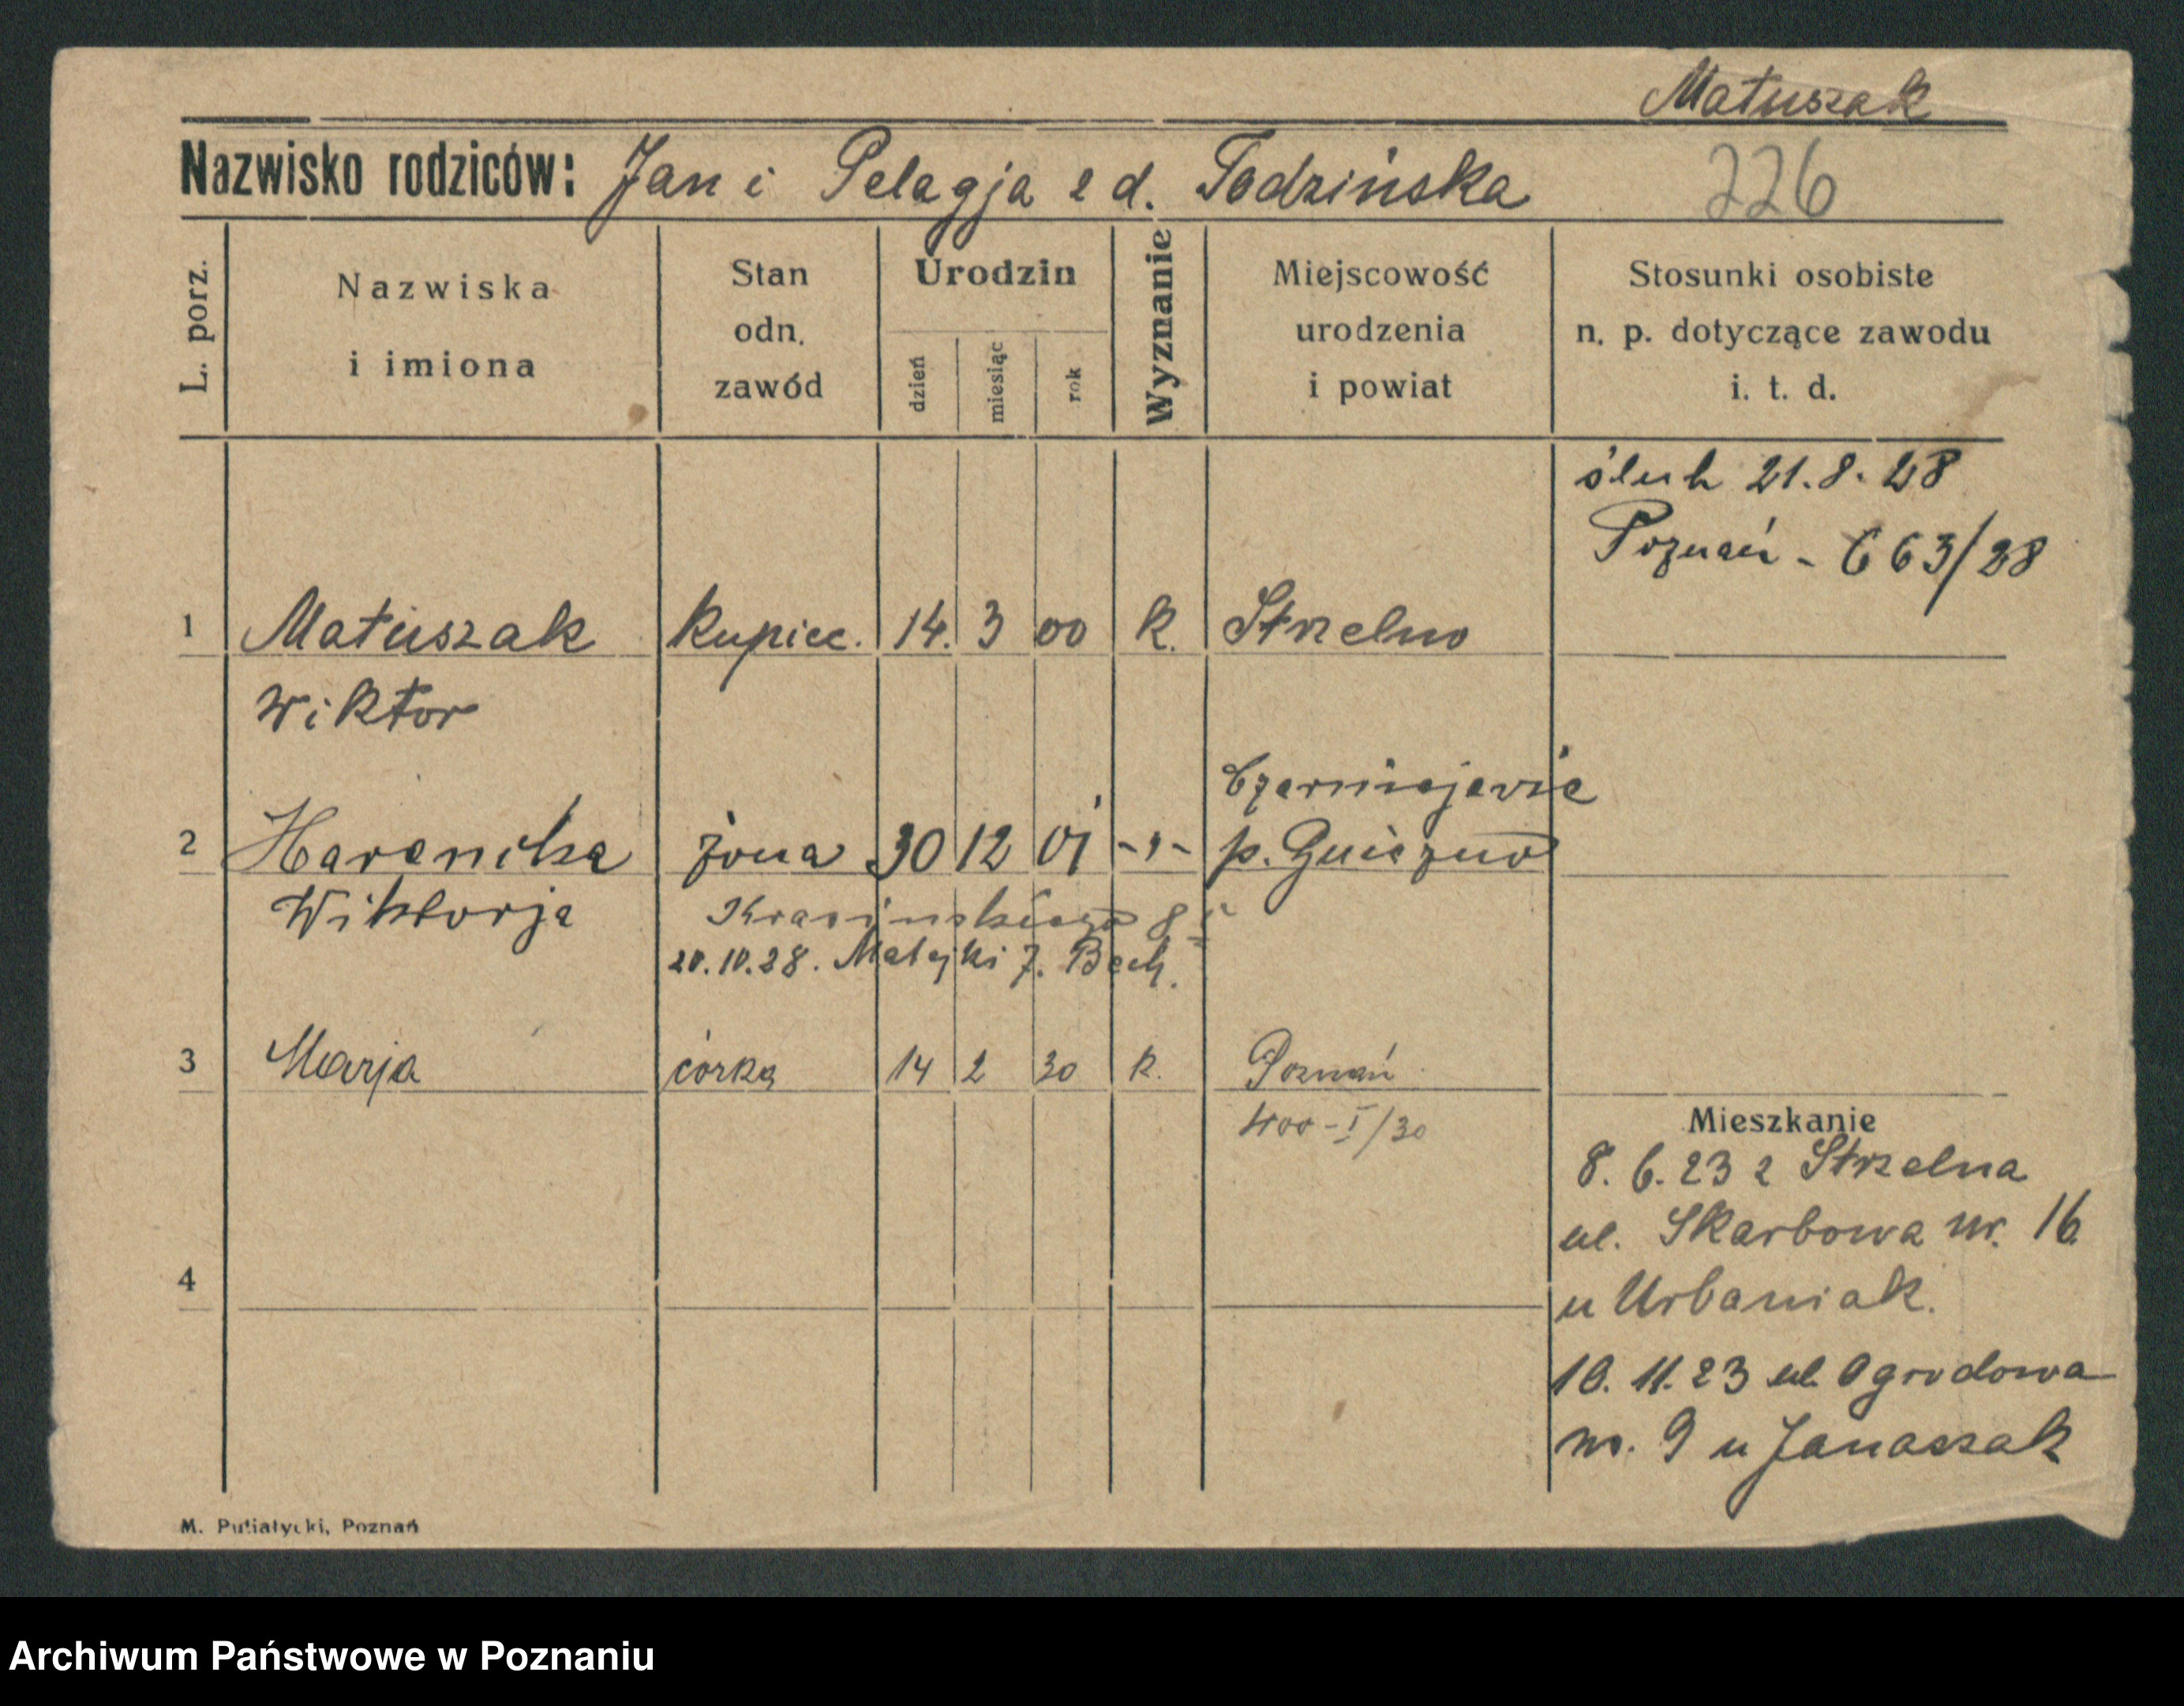 Matuszak
Nazwisko rodziców: Jan i Pelagja z d. Todzińska
226
L. porz.
Nazwiska
i imiona
Stan
odn.
zawód
Urodzin
dzień
miesiąc
rok
Wyznanie
Miejscowość
urodzenia
i powiat
Stosunki osobiste
n. p. dotyczące zawodu
i. t. d.
ślub 21.8.28
Poznań - 663/28
1 Matuszak kupiec. 14. 3 00 k. Strzelno
Wiktor
Czerniejewie
2 żona 30 12 01 -"- p. Gniezno
Wiktorja Krasińskiego 8
20.10.28. Matejki 7.
3 Marja córka 14 2 30 k. Poznań
400-I/30
Mieszkanie
8. 6. 23 z Strzelna
ul. Skarbowa nr. 16
4
u Urbaniak.
10. 11. 23 ul. Ogrodowa
nr. 9 u Janaszak
M. Putiatycki, Poznań
Archiwum Państwowe w Poznaniu